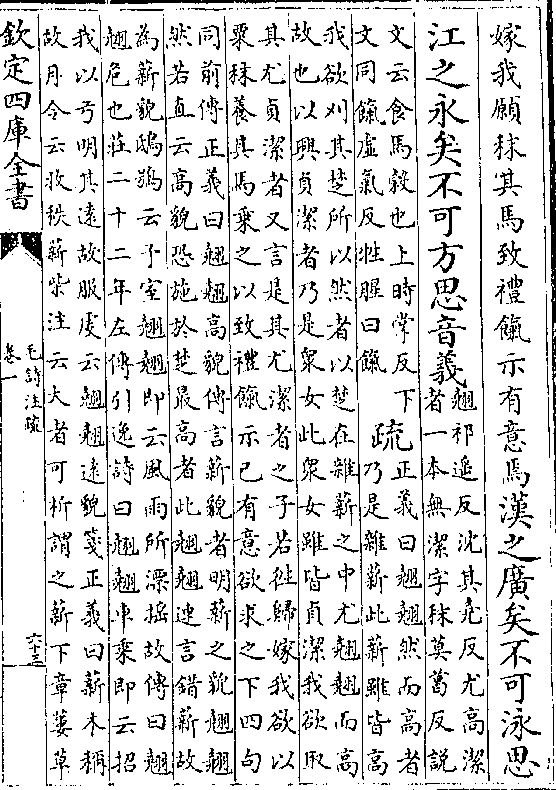 嫁我願秣其馬致禮餼示有意焉漢之廣矣不可泳思
江之永矣不可方思音義
翹祁遥反沈其堯反尤高潔
者一本無潔字秣莫葛反説
文云食馬穀也上時掌反下
文同餼虚氣反牲腥曰餼
疏
正義曰翹翹然而高者
乃是雜薪此薪雖皆高
我欲刈其楚所以然者以楚在雜薪之中尤翹翹而高
故也以興貞潔者乃是衆女此衆女雖皆貞潔我欲取
其尤貞潔者又言是其尤潔者之子若往歸嫁我欲以
粟秣養其馬乘之以致禮餼示已有意欲求之下四句
同前傳正義曰翹翹高貌傳言薪貌者明薪之貌翹翹
然若直云高貌恐施於楚最高者此翹翹連言錯薪故
為薪貌鴟鴞云予室翹翹即云風雨所漂摇故傳曰翹
翹危也莊二十二年左傳引逸詩曰翹翹車乘即云招
我以弓明其遠故服虔云翹翹遠貌箋正義曰薪木稱
故月令云收秩薪柴注云大者可析謂之薪下章蔞草
欽定四庫全書
毛詩注疏
卷一
六十三